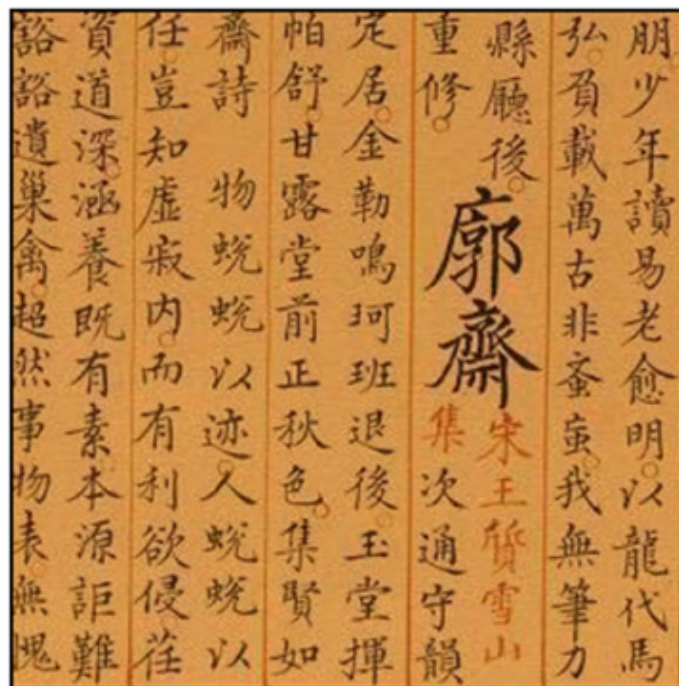 朋少年讀易老愈明。以龍代馬
弘。負載萬古非蚉䖟。我無筆力
縣廳後。
重修。
廓齋
宋王質雪山
集次通守韻
定居。金勒鳴珂班退後。玉堂揮
帕舒。甘露堂前正秋色。集賢如
齋詩　物蛻蛻以迹。人蛻蛻以
任。豈知虛寂内。而有利欲侵。荏
資道深。涵養既有素。本源詎難
豁豁遺巢禽。超然事物表。無愧